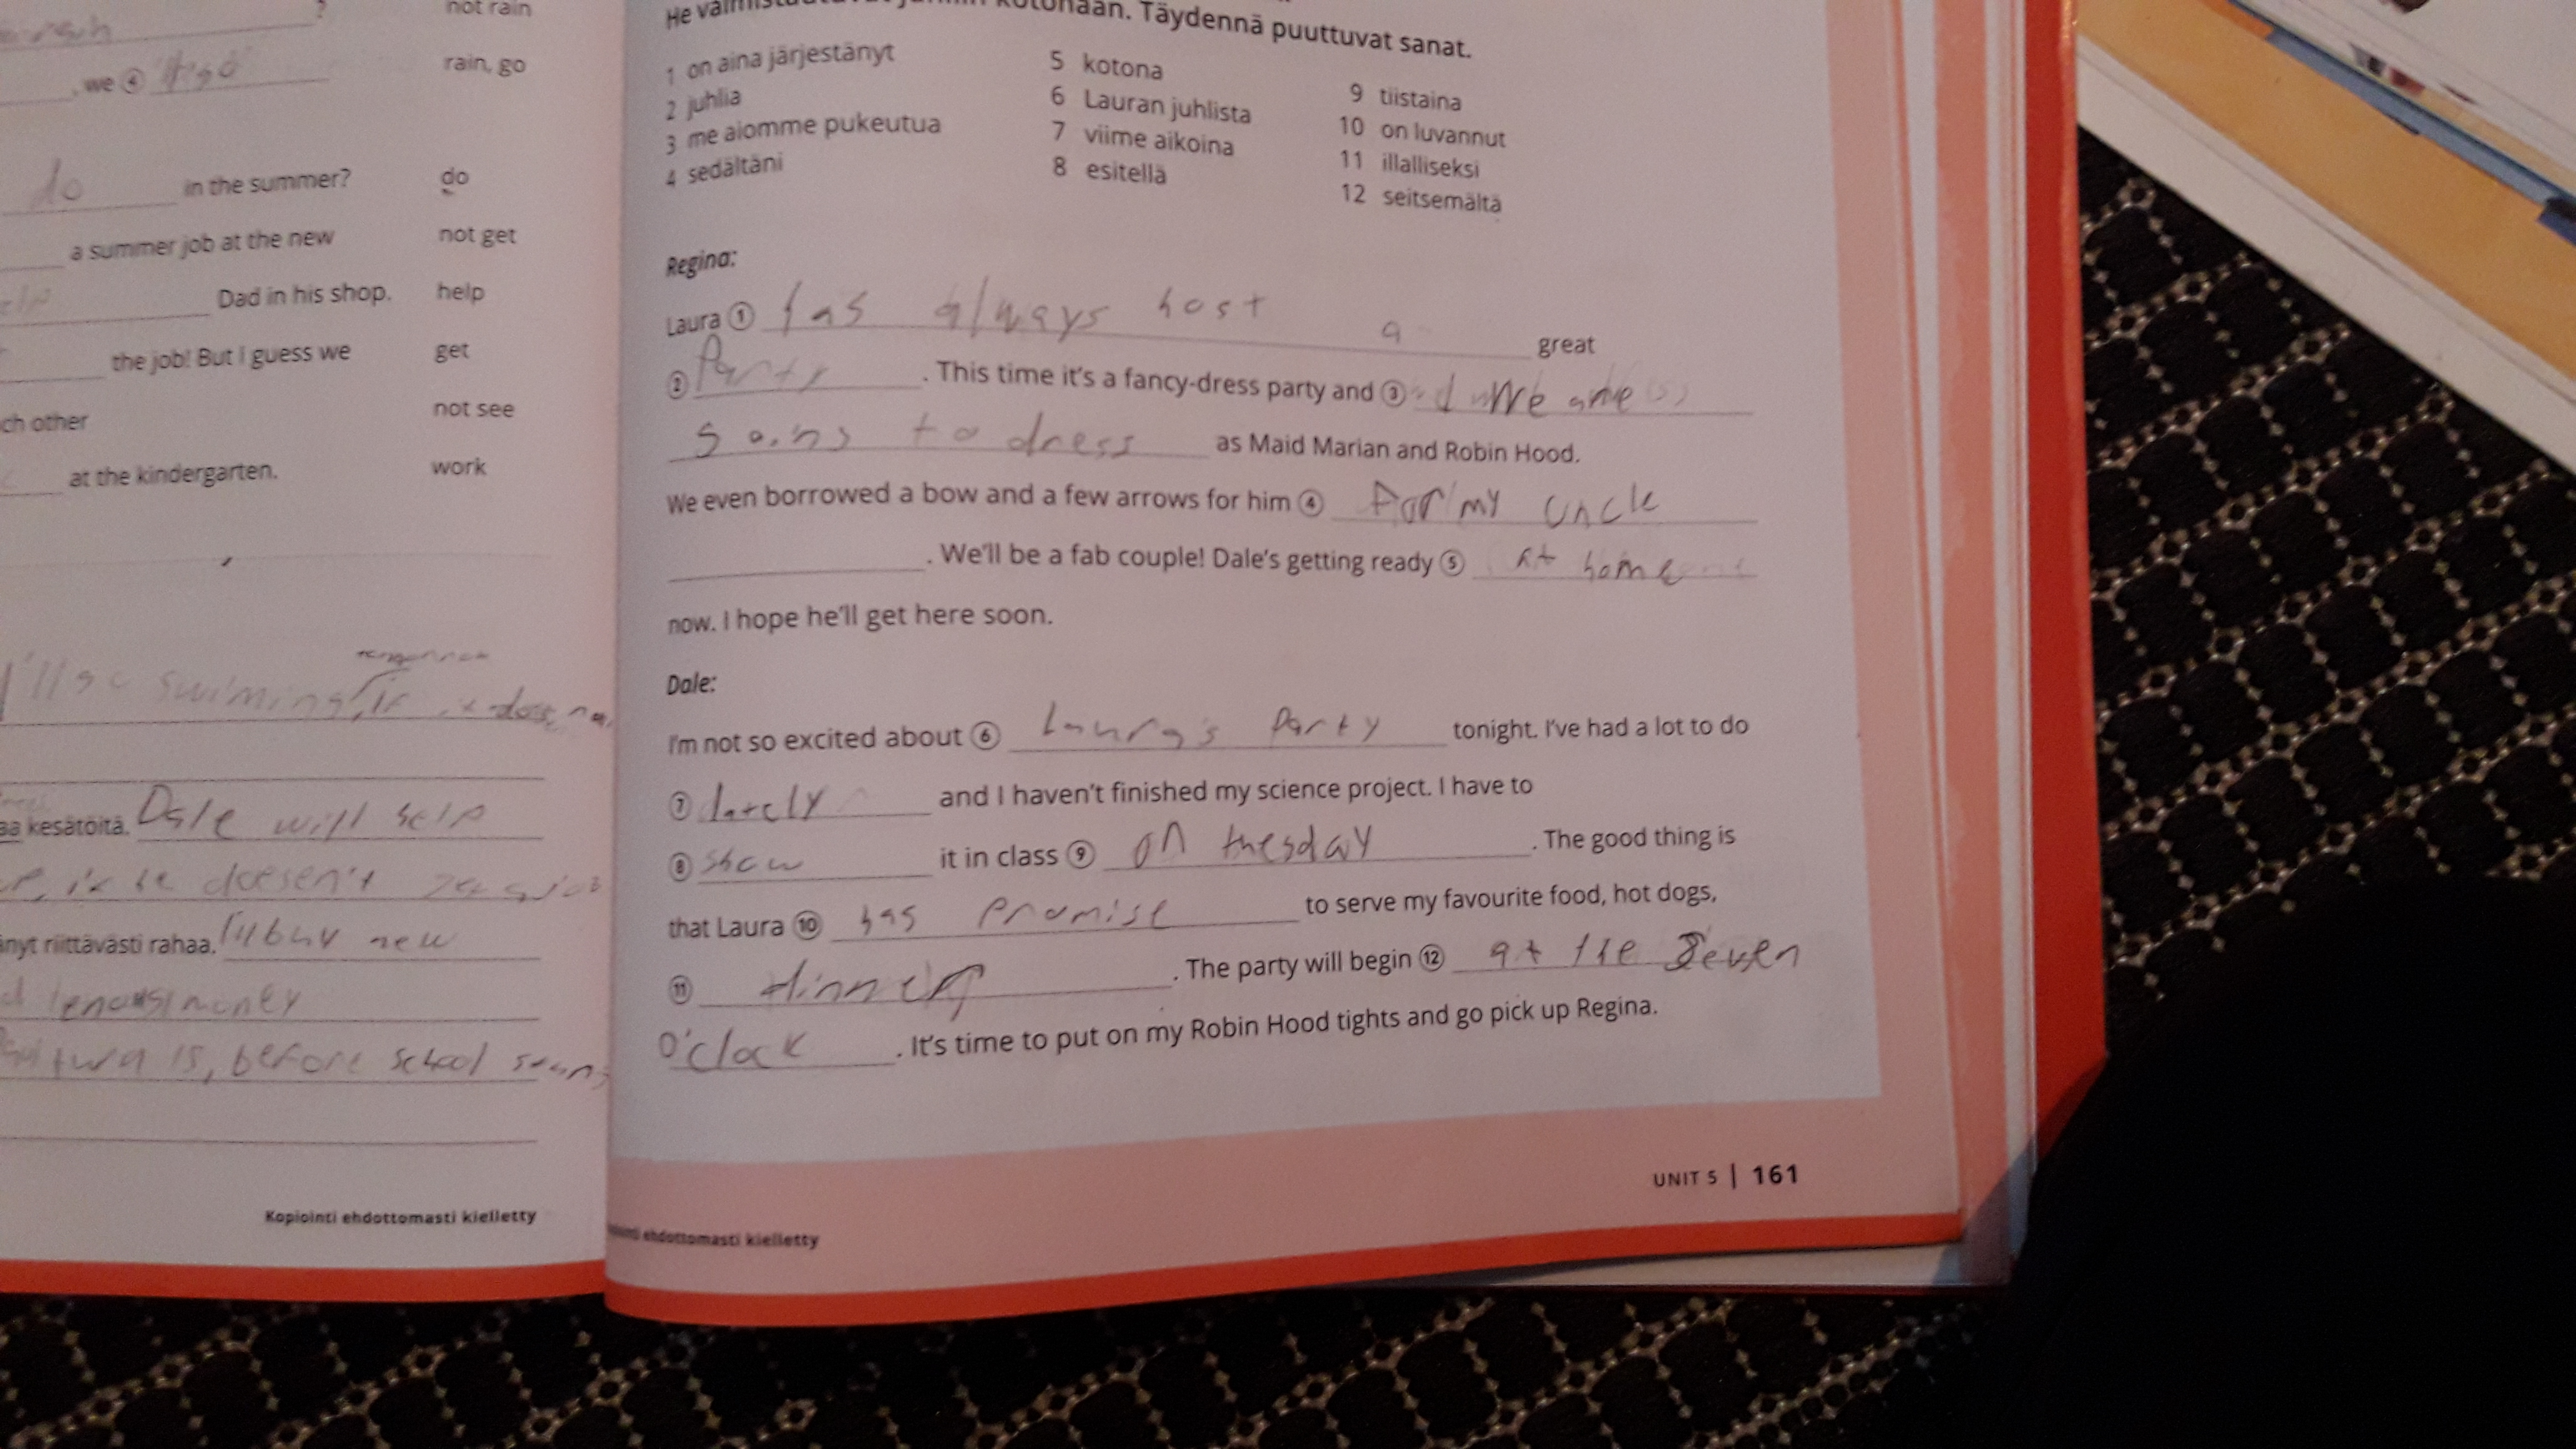 ?
not rain
, we ④
rain, go
do in the summer? do
a summer job at the new not get
Dad in his shop. help
the job! But I guess we get
ch other not see
at the kindergarten. work
I'll go swiming, if it
aa kesätöitä. Dale will help
if he doesen't
änyt riittävästi rahaa. new
money
is, before school
Kopiointi ehdottomasti kielletty
kotonaan. Täydennä puuttuvat sanat.
1 on aina järjestänyt
2 juhlia
3 me aiomme pukeutua
4 sedältäni
5 kotona
6 Lauran juhlista
7 viime aikoina
8 esitellä
9 tiistaina
10 on luvannut
11 illalliseksi
12 seitsemältä
Regina:
Laura ① has always host a great
② Party . This time it's a fancy-dress party and ③ We are
going to dress as Maid Marian and Robin Hood.
We even borrowed a bow and a few arrows for him ④ for my uncle
. We'll be a fab couple! Dale's getting ready ⑤ at home
now. I hope he'll get here soon.
Dale:
I'm not so excited about ⑥ Laura's Party tonight. I've had a lot to do
⑦ lately and I haven't finished my science project. I have to
⑧ show it in class ⑨ on tuesday . The good thing is
that Laura ⑩ has promise to serve my favourite food, hot dogs,
⑪ dinner . The party will begin ⑫ at the Seven
O'clock . It's time to put on my Robin Hood tights and go pick up Regina.
UNIT 5 | 161
ehdottomasti kielletty